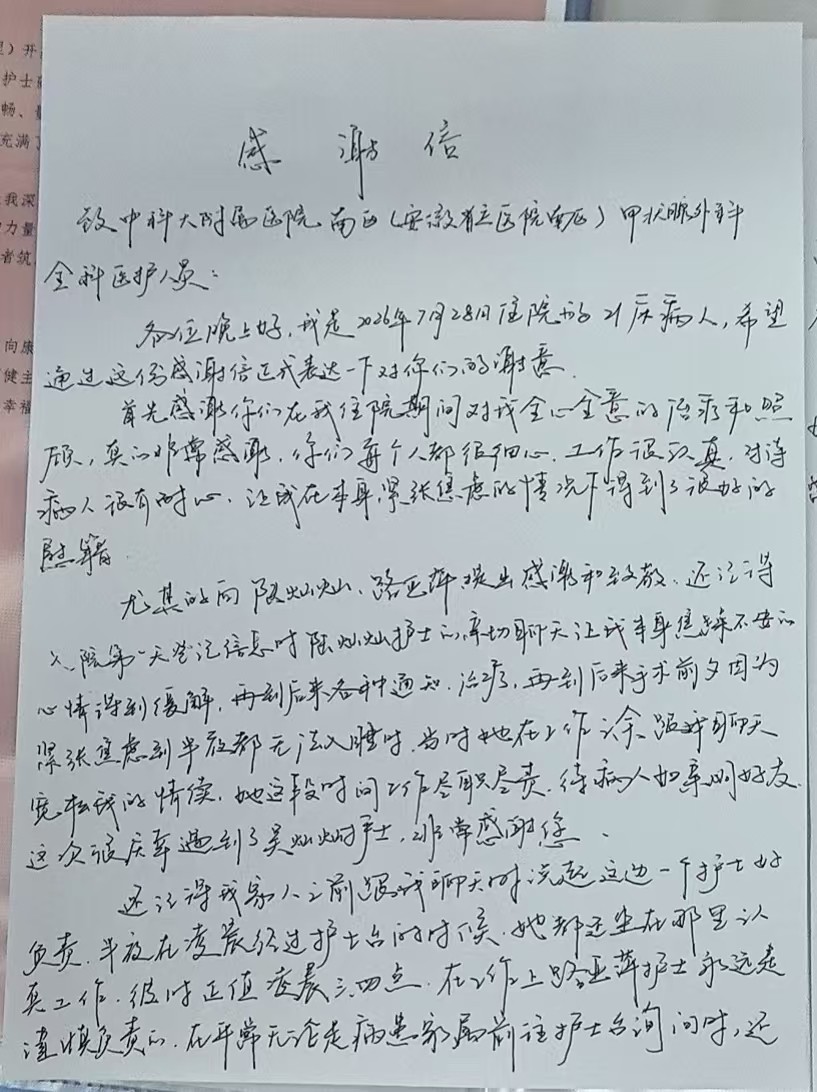 感谢信
致中科大附属医院南区(安徽省立医院南区)甲状腺外科
全科医护人员:
各位晚上好,我是2026年7月28日住院的21床病人,希望
通过这份感谢信正式表达一下对你们的谢意.
首先感谢你们在我住院期间对我全心全意的治疗和照
顾,真的非常感谢,你们每个人都很细心、工作很认真,对待
病人很有耐心,让我在本身紧张焦虑的情况下得到了很好的
慰籍.
尤其的向 灿灿、路亚萍提出感谢和致敬,还记得
入院第一天登记信息时 灿灿护士的亲切聊天让我本身焦躁不安的
心情得到缓解,再到后来各种通知、治疗,再到后来手术前夕因为
紧张焦虑到半夜都无法入睡时,当时她在工作之余跟我聊天
宽松我的情绪,她这段时间工作尽职尽责,待病人如亲朋好友.
这次很庆幸遇到了吴灿灿护士,非常感谢您.
还记得我家人之前跟我聊天时说起这边一个护士好
负责,半夜在凌晨经过护士台的时候,她都还坐在那里认
真工作,彼时正值凌晨三四点,在工作上路亚萍护士永远是
谨慎负责的,在平常无论是病患家属前往护士台询问时,还
向康
健主
幸福
我深
力量
者筑
护士
畅、
充满